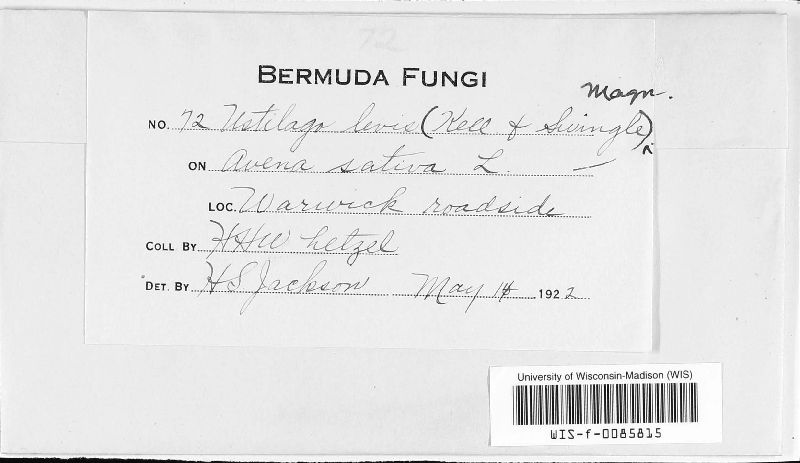 72
BERMUDA FUNGI
Magn.
NO. 72 Ustilago levis (Kell & Swingle) ^
ON Avena sativa L. —
LOC. Warwick roadside
COLL BY HHWhetzel
DET. BY HS Jackson May 14 1922
University of Wisconsin-Madison (WIS)
WIS-f-0085815